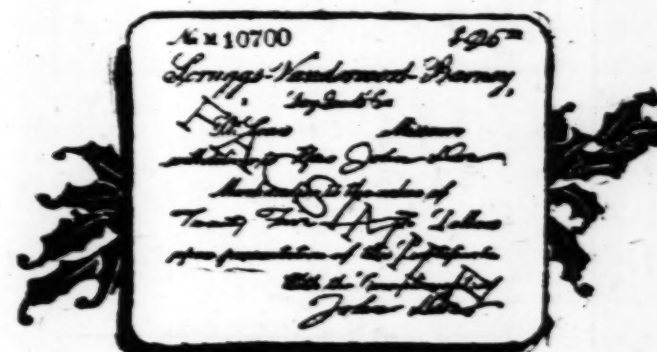 No. 10700 $25 00
Scruggs-Vandervoort-Barney,
Dry Goods Co.
St. Louis Missouri
John Doe
Merchandise to the value of
Twenty Five Dollars
upon presentation of this Certificate
With the Compliments of
John Doe